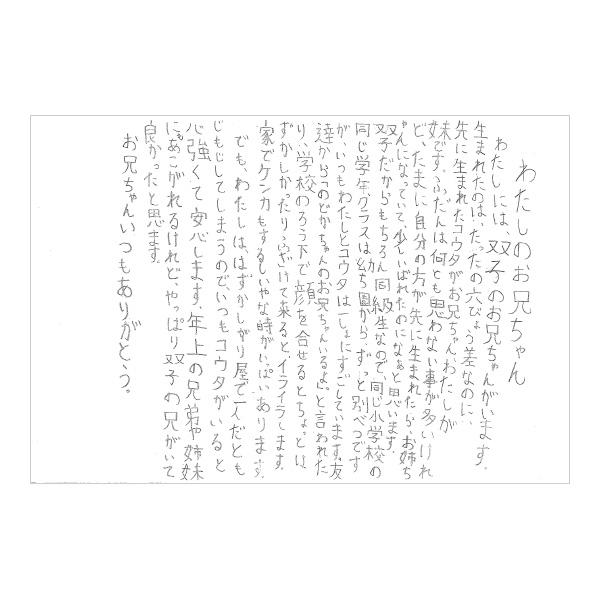 わたしのお兄ちゃん
わたしには、双子のお兄ちゃんがいます。
生まれたのは、たったの六びょう差なのに、
先に生まれたコウタがお兄ちゃん、わたしが
妹です。ふだんは何とも思わない事が多いけれ
ど、たまに自分の方が先に生まれたら、お姉ち
ゃんになっていて、少しいばれたのになぁと思います。
双子だからもちろん同級生なので、同じ小学校の
同じ学年。クラスは幼ち園から、ずっと別べつです
が、いつもわたしとコウタは一しょにすごしています。友
達から「のどかちゃんのお兄ちゃんいるよ。」と言われた
り、学校のろう下で顔を合せるとちょっとは
ずかしかったり、ふざけて来ると、イライラします。
家でケンカもするしいやな時がいっぱいあります。
でも、わたしは、はずかしがり屋で一人だとも
じもじしてしまうので、いつもコウタがいると
心強くて安心します。年上の兄弟や姉妹
にあこがれるけれど、やっぱり双子の兄がいて
良かったと思います。
お兄ちゃんいつもありがとう。